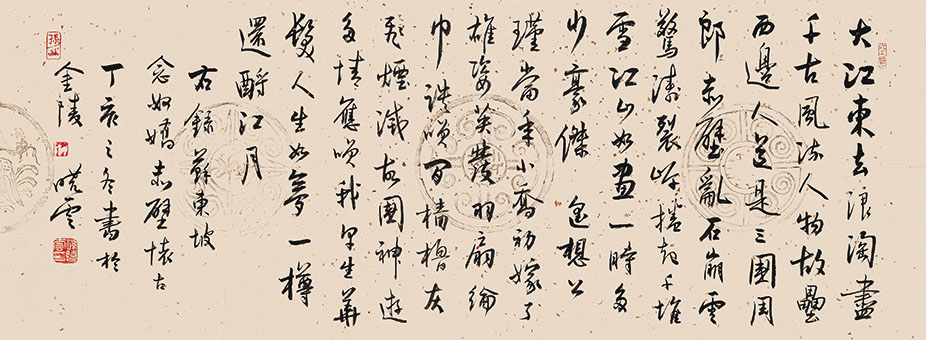 大江東去浪淘盡
千古風流人物故壘
西邊人道是三國周
郎赤壁亂石崩雲
驚濤裂岸捲起千堆
雪江山如畫一時多
少豪傑 遙想公
瑾當年小喬初嫁了
雄姿英發羽扇綸
巾談咲間檣櫓灰
飛煙滅故國神遊
多情應咲我早生華
髮人生如夢一樽
還酹江月
右錄蘇東坡
念奴嬌赤壁懷古
丁亥之冬書於
金陵 曉雲